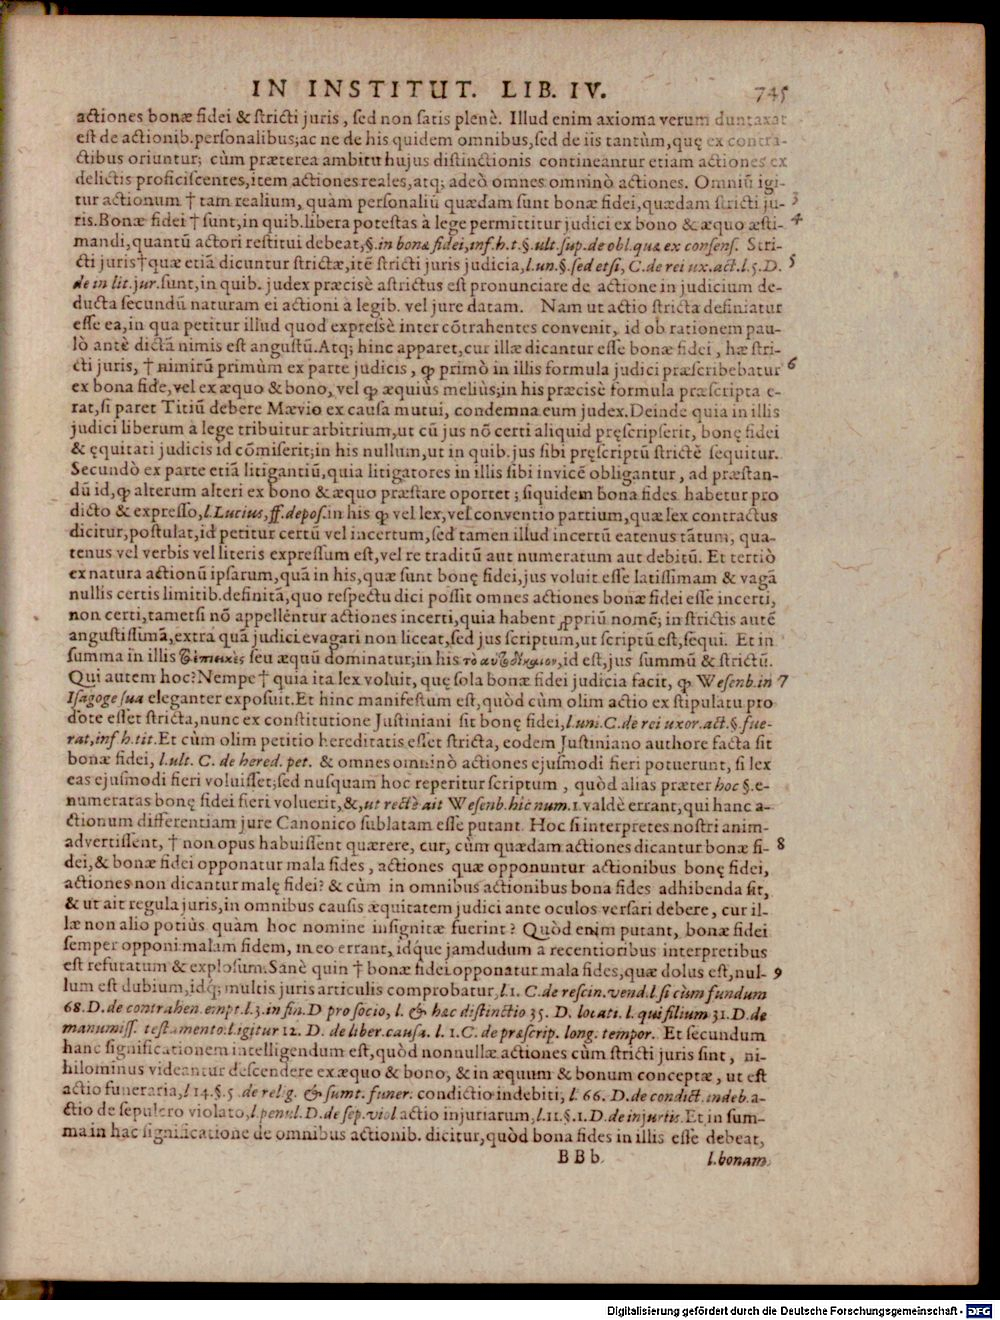 IN INSTITUT. LIB. IV. 745
actiones bonæ fidei & ſtricti juris, ſed non ſatis plenè. Illud enim axioma verum duntaxat
eſt de actionib.perſonalibus;ac ne de his quidem omnibus,ſed de iis tantùm,quę ex contra-
ctibus oriuntur; cùm præterea ambitu hujus diſtinctionis contineantur etiam actiones ex
delictis proficiſcentes,item actiones reales,atq; adeò omnes omninò actiones. Omniũ igi-
tur actionum † tam realium, quàm perſonaliũ quædam ſunt bonæ fidei,quædam ſtricti ju- 3
ris.Bonæ fidei † ſunt,in quib.libera poteſtas à lege permittitur judici ex bono & æquo æſti- 4
mandi,quantũ actori reſtitui debeat,§.in bonæ fidei,inf.h.t.§.ult.ſup.de obl.quæ ex conſenſ. Stri-
cti juris†quæ etiã dicuntur ſtrictæ,itẽ ſtricti juris judicia,l.un.§.ſed etſi, C.de rei ux.act.l.5.D. 5
de in lit.jur.ſunt,in quib. judex præcisè aſtrictus eſt pronunciare de actione in judicium de-
ducta ſecundũ naturam ei actioni à legib. vel jure datam. Nam ut actio ſtricta definiatur
eſſe ea,in qua petitur illud quod expreſsè inter cõtrahentes convenit, id ob rationem pau-
lò antè dictã nimis eſt anguſtũ.Atq; hinc apparet,cur illæ dicantur eſſe bonæ fidei, hæ ſtri-
cti juris, † nimirũ primùm ex parte judicis, ꝙ primò in illis formula judici præſcribebatur 6
ex bona fide,vel ex æquo & bono, vel ꝙ æquiùs meliùs;in his præcisè formula præſcripta e-
rat,ſi paret Titiũ debere Mævio ex cauſa mutui, condemna eum judex.Deinde quia in illis
judici liberum à lege tribuitur arbitrium,ut cũ jus nõ certi aliquid pręſcripſerit, bonę fidei
& ęquitati judicis id cõmiſerit;in his nullum,ut in quib.jus ſibi pręſcriptũ ſtrictè ſequitur.
Secundò ex parte etiã litigantiũ,quia litigatores in illis ſibi invicẽ obligantur, ad præſtan-
dũ id,ꝙ alterum alteri ex bono & æquo præſtare oportet; ſiquidem bona fides habetur pro
dicto & expreſſo,l.Lucius,ff.depoſ.in his ꝙ vel lex,vel conventio partium,quæ lex contractus
dicitur,poſtulat,id petitur certũ vel incertum,ſed tamen illud incertũ eatenus tãtum, qua-
tenus vel verbis vel literis expreſſum eſt,vel re traditũ aut numeratum aut debitũ. Et tertiò
ex natura actionũ ipſarum,quã in his,quæ ſunt bonę fidei,jus voluit eſſe latiſſimam & vagã
nullis certis limitib.definitã,quo reſpectu dici poſſit omnes actiones bonæ fidei eſſe incerti,
non certi,tametſi nõ appellẽtur actiones incerti,quia habent ꝓpriũ nomẽ; in ſtrictis autẽ
anguſtiſſimã,extra quã judici evagari non liceat,ſed jus ſcriptum,ut ſcriptũ eſt,ſequi. Et in
ſumma in illis ἐπιεικὲς ſeu æquũ dominatur;in his τὸ αὐθέκαιον,id eſt,jus ſummũ & ſtrictũ.
Qui autem hoc?Nempe † quia ita lex voluit, quę ſola bonæ fidei judicia facit, ꝙ Weſenb.in 7
Iſagoge ſua eleganter expoſuit.Et hinc manifeſtum eſt,quòd cùm olim actio ex ſtipulatu pro
dote eſſet ſtricta,nunc ex conſtitutione Juſtiniani ſit bonę fidei,l.uni.C.de rei uxor.act.§.fue-
rat,inf.h.tit.Et cùm olim petitio hereditatis eſſet ſtricta, eodem Juſtiniano authore facta ſit
bonæ fidei, l.ult. C. de hered. pet. & omnes omninò actiones ejuſmodi fieri potuerunt, ſi lex
eas ejuſmodi fieri voluiſſet;ſed nuſquam hoc reperitur ſcriptum, quòd alias præter hoc §.e-
numeratas bonę fidei fieri voluerit,&,ut rectè ait Weſenb.hic num.1.valdè errant,qui hanc a-
ctionum differentiam jure Canonico ſublatam eſſe putant. Hoc ſi interpretes noſtri anim-
advertiſſent, † non opus habuiſſent quærere, cur, cùm quædam actiones dicantur bonæ fi- 8
dei,& bonæ fidei opponatur mala fides, actiones quæ opponuntur actionibus bonę fidei,
actiones non dicantur malę fidei? & cùm in omnibus actionibus bona fides adhibenda ſit,
& ut ait regula juris,in omnibus cauſis æquitatem judici ante oculos verſari debere, cur il-
læ non alio potiùs quàm hoc nomine inſignitæ fuerint? Quòd enim putant, bonæ fidei
ſemper opponi malam fidem, in eo errant, idq́ue jamdudum a recentioribus interpretibus
eſt refutatum & exploſum.Sanè quin † bonæ fidei opponatur mala fides,quæ dolus eſt,nul- 9
lum eſt dubium,idq́; multis juris articulis comprobatur,l.1. C.de reſcin.vend.l.ſi cùm fundum
68.D.de contrahen.empt.l.3.in fin.D pro ſocio, l. & hæc diſtinctio 35. D. locati. l. qui filium 31.D.de
manumiſſ. teſtamento.l.igitur 12. D. de liber.cauſa. l. 1.C.de præſcrip. long. tempor. Et ſecundum
hanc ſignificationem intelligendum eſt,quòd nonnullæ actiones cùm ſtricti juris ſint, ni-
hilominus videantur deſcendere ex æquo & bono, & in æquum & bonum conceptæ, ut eſt
actio funeraria,l.14.§.5 .de relig. & ſumt. funer. condictio indebiti, l. 66. D.de condict.indeb.a-
ctio de ſepulcro violato,l.penul.D.de ſep.viol actio injuriarum,l.11.§.1.D.de injuriis.Et in ſum-
ma in hac ſignificatione de omnibus actionib. dicitur,quòd bona fides in illis eſſe debeat,
BBb. l.bonam.
Digitalisierung gefördert durch die Deutsche Forschungsgemeinschaft - DFG